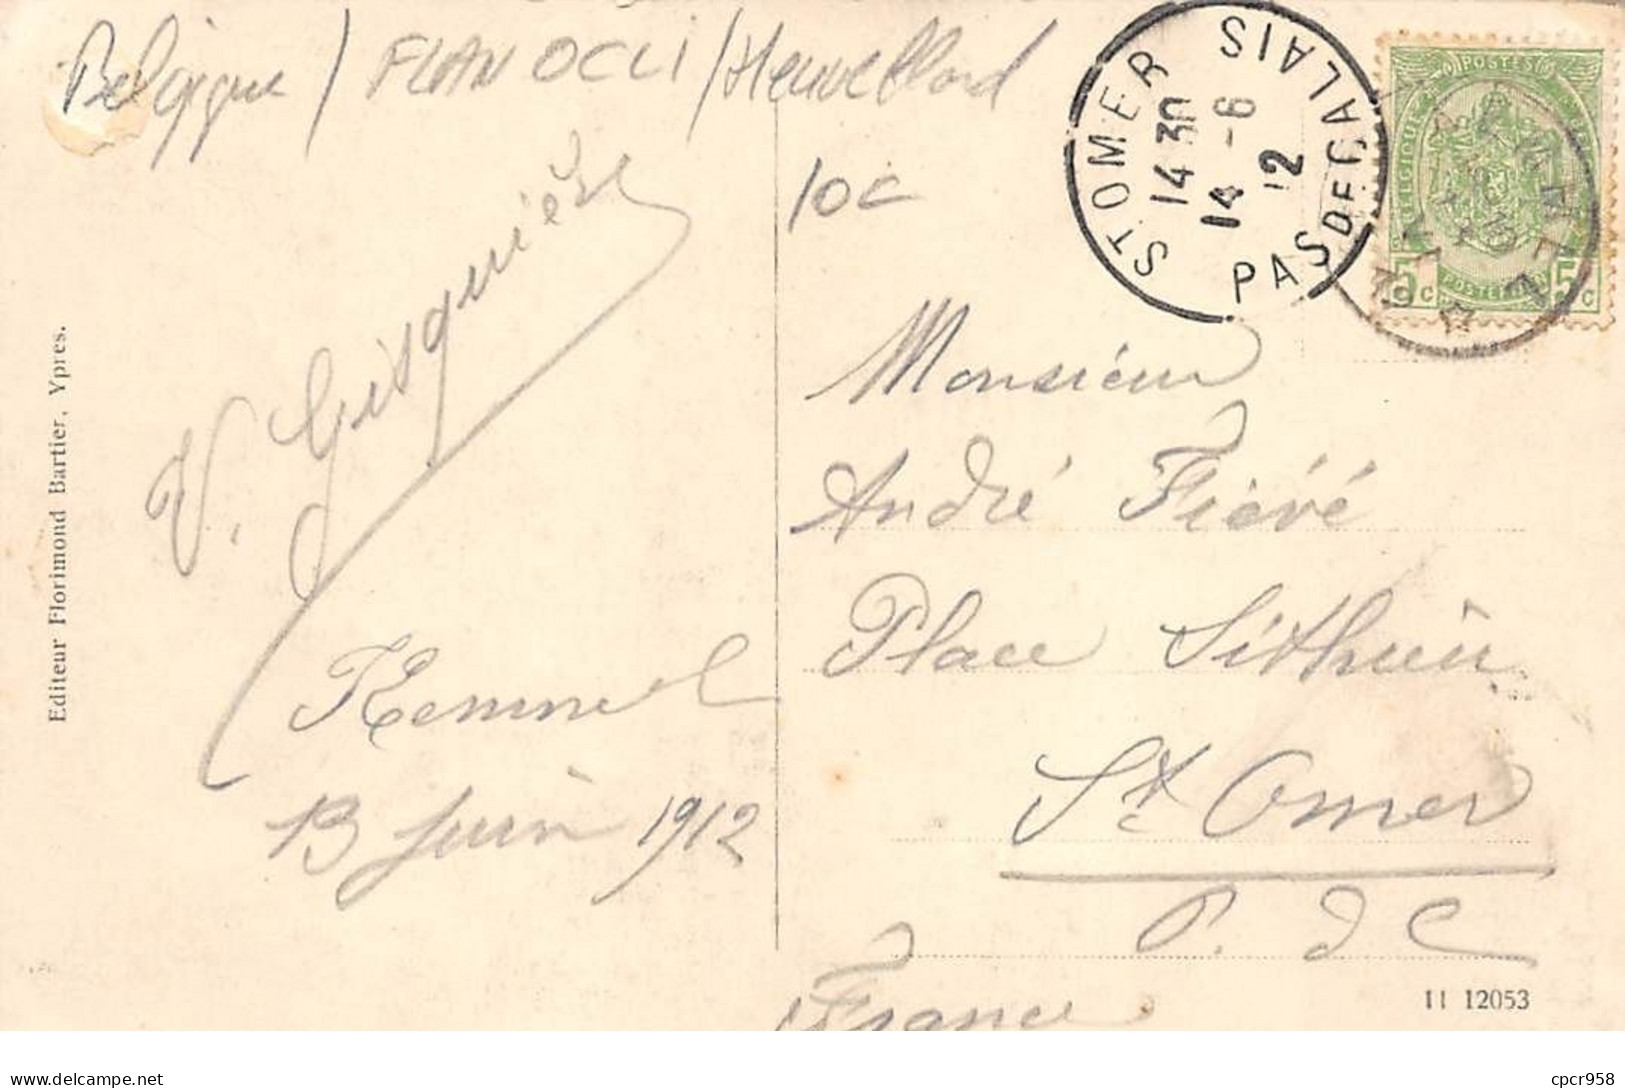 Belgique / FLAN OCCI / Heuvelland
10c
ST OMER
PAS DE CALAIS
14 30
14 - 6
12
POSTES
BELGIQUE
5 c
5 c
POSTERIJEN
V. Gisquière
Editeur Florimond Bartier, Ypres.
Kemmel
13 Juin 1912
Monsieur
André Fiévé
Place Sithieu
St Omer
P. d C
France
11 12053
cpcr958